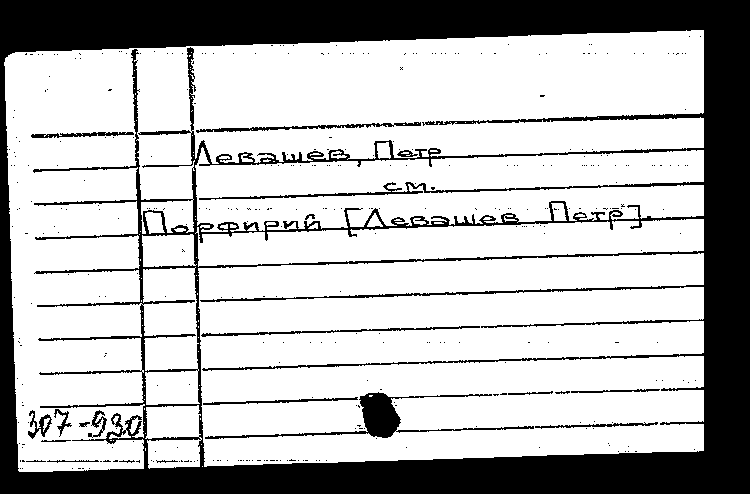 Левашев, Петр
см.
Порфирий [Левашев Петр].
307-930